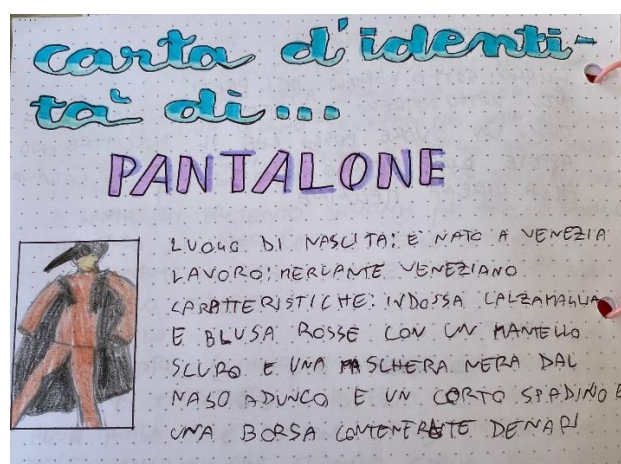 carta d'identi-
tà dì...
PANTALONE
LUOGO DI NASCITA: È NATO A VENEZIA
LAVORO: MERCANTE VENEZIANO
CARATTERISTICHE: INDOSSA CALZAMAGLIA
E BLUSA ROSSE CON UN MANTELLO
SCURO E UNA MASCHERA NERA DAL
NASO ADUNCO E UN CORTO SPADINO E
UNA BORSA CONTENENTE DENARI